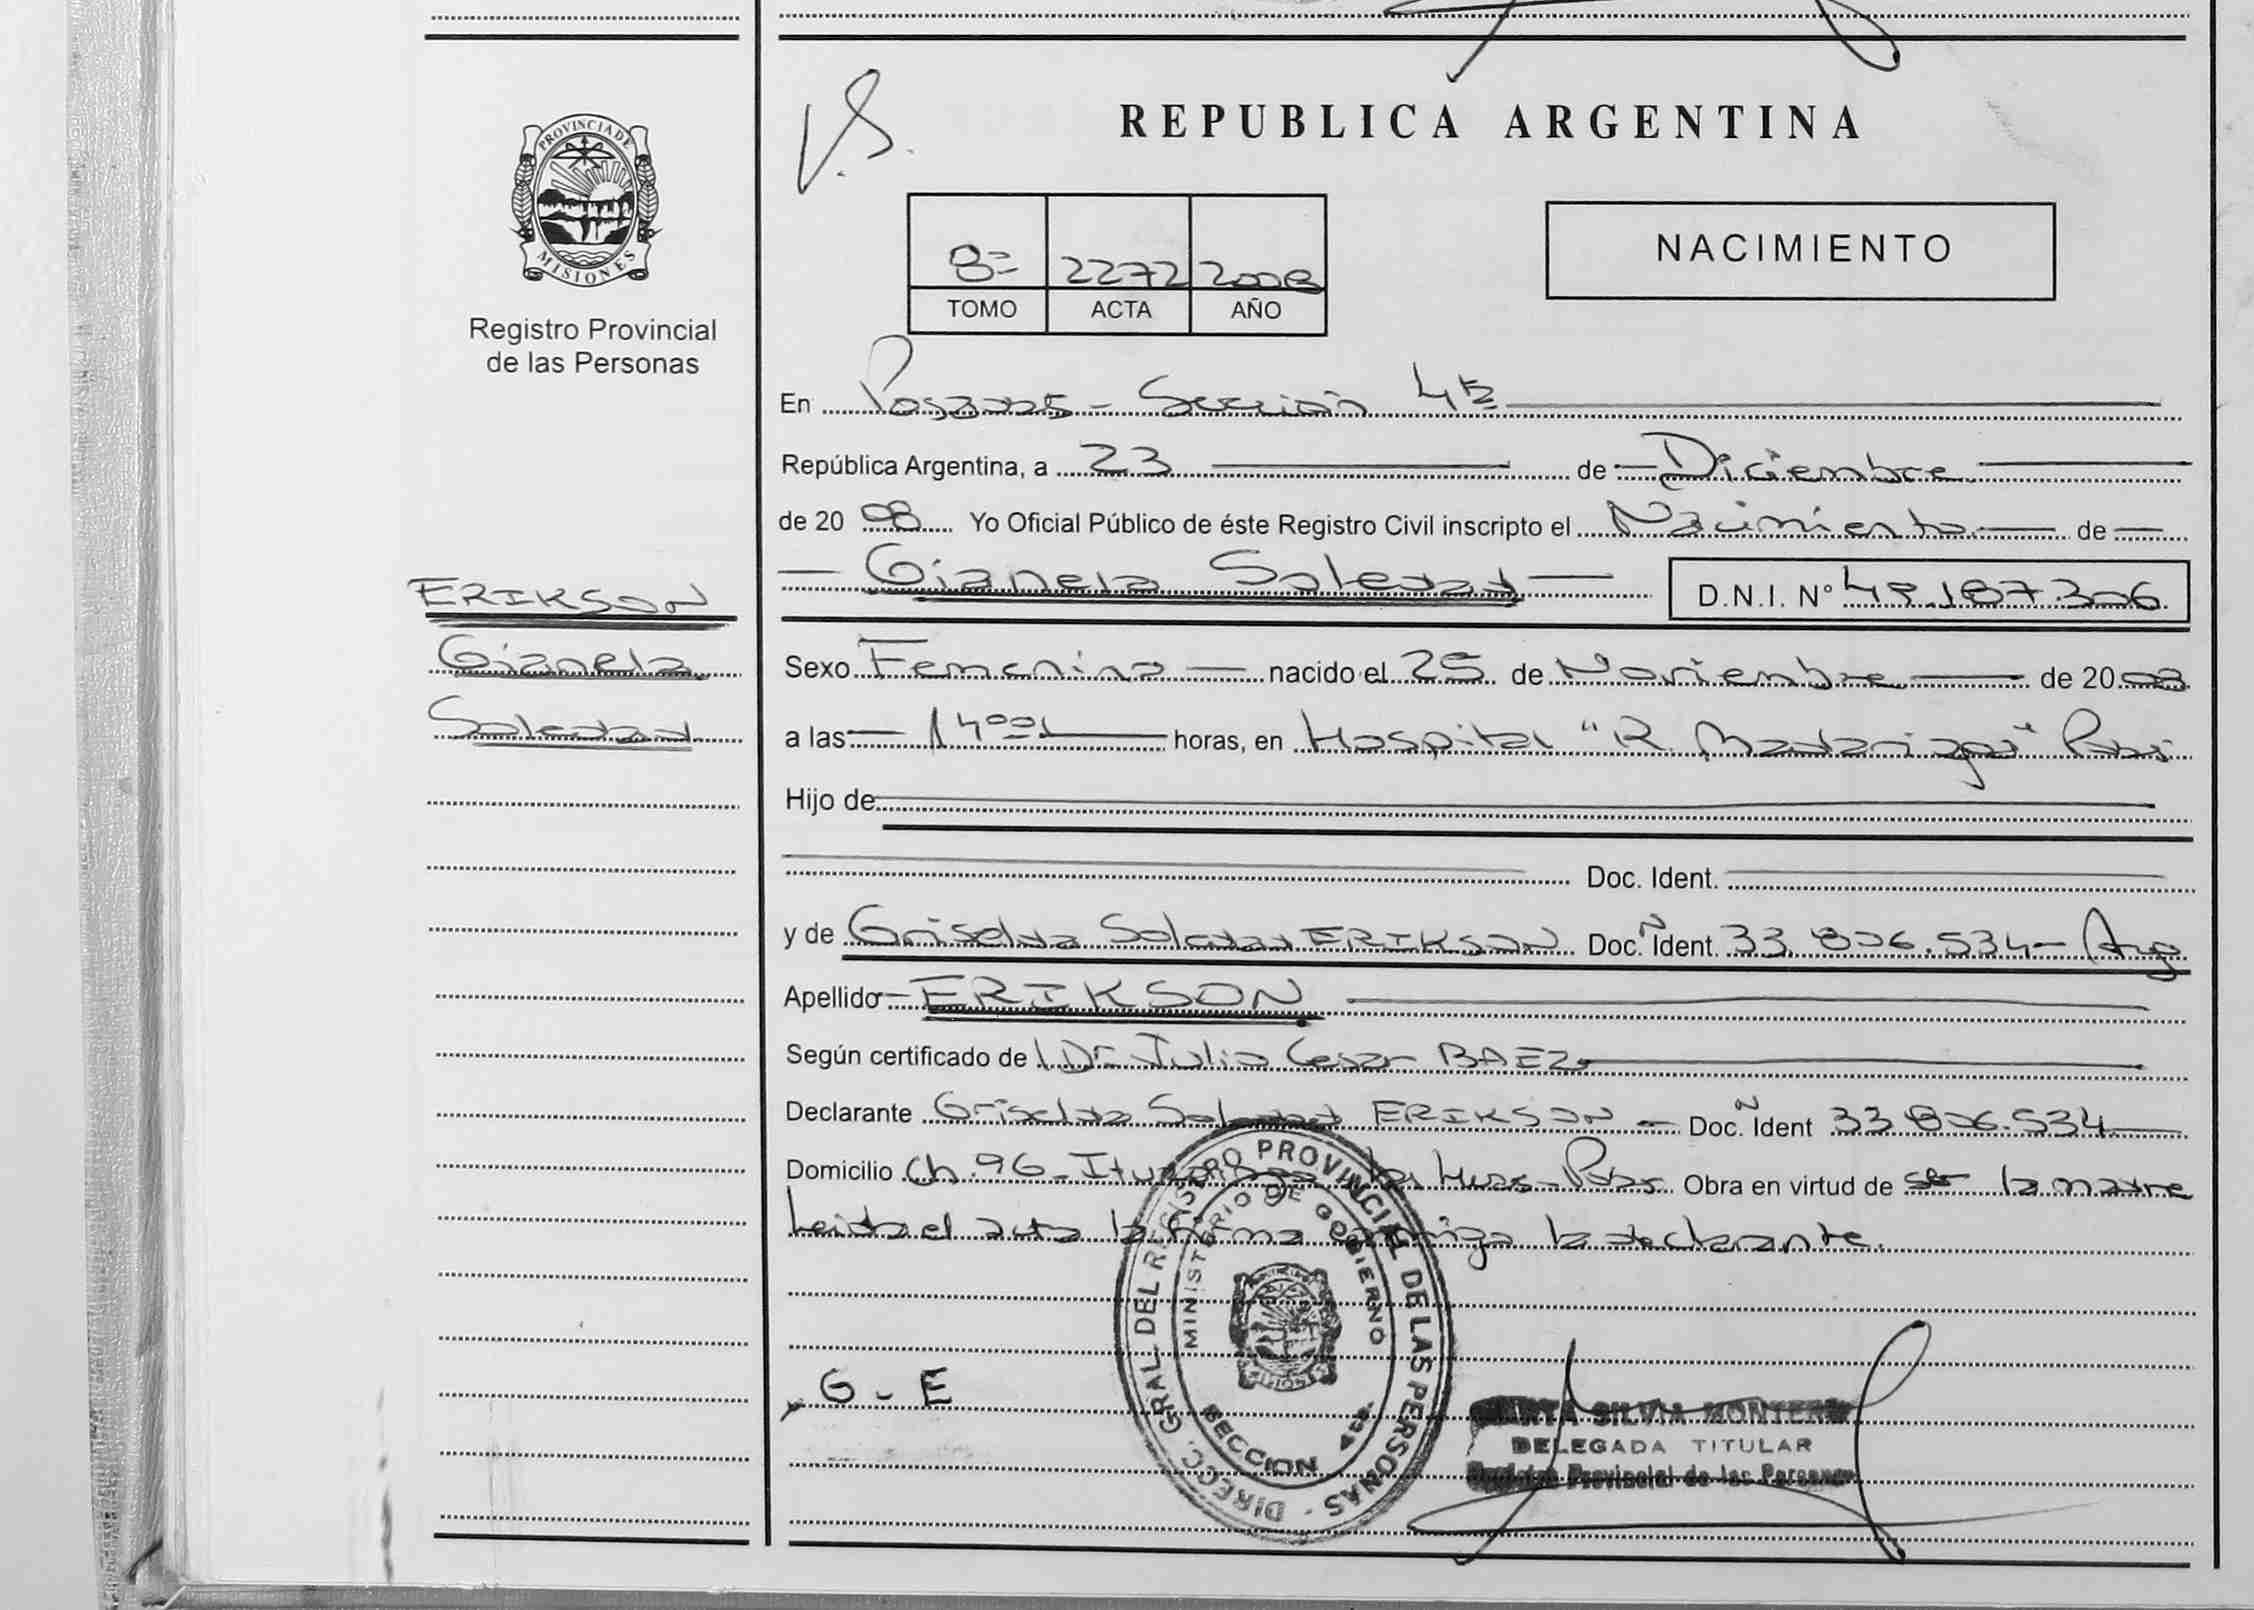 V.S.
REPUBLICA ARGENTINA
PROVINCIA DE
MISIONES
Registro Provincial
de las Personas
8= 2272 2008
TOMO ACTA AÑO
NACIMIENTO
En Posadas - Sección 4ta
República Argentina, a 23 de Diciembre
de 2008 Yo Oficial Público de éste Registro Civil inscripto el Nacimiento de
Gianela Soledad D.N.I. Nº 49.187.306
ERIKSON
Gianela
Soledad
Sexo Femenino nacido el 25 de Noviembre de 2008
a las 14 horas, en Hospital "R. Madariaga"
Hijo de
Doc. Ident.
y de Griselda Soledad ERIKSON Doc. N Ident. 33.806.534- Arg
Apellido ERIKSON
Según certificado de Dr. Julio Cesar BAEZ
Declarante Griselda Soledad ERIKSON Doc. N Ident 33.806.534
Domicilio Ch. 96 - Obra en virtud de ser la madre
Leida el acta la firma conmigo la declarante.
DIRECC. GRAL. DEL REGISTRO PROVINCIAL DE LAS PERSONAS
MINISTERIO DE GOBIERNO
SECCION 4ta.
G - E
SILVIA
DELEGADA TITULAR
Provincial de las Personas